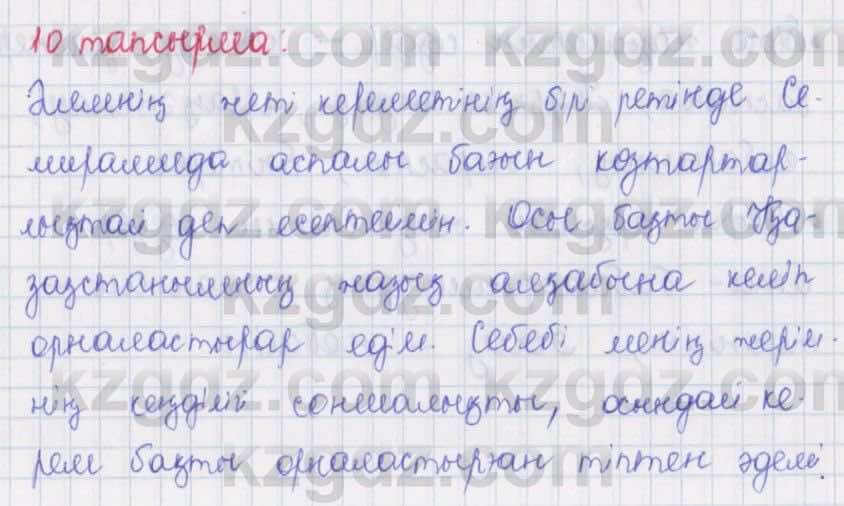 10 тапсырма:
Әлемнің жеті кереметінің бірі ретінде Се-
мирамида аспалы бағын көзтартар-
лықтай деп есептеймін. Осы бақты Қа-
зақстанымның жазық алқабына келіп
орналастырар едім. Себебі менің жерім-
нің кеңдігі соншалықты, осындай ке-
рем бақты орналастырған тіптен әдемі.
kzgdz.com